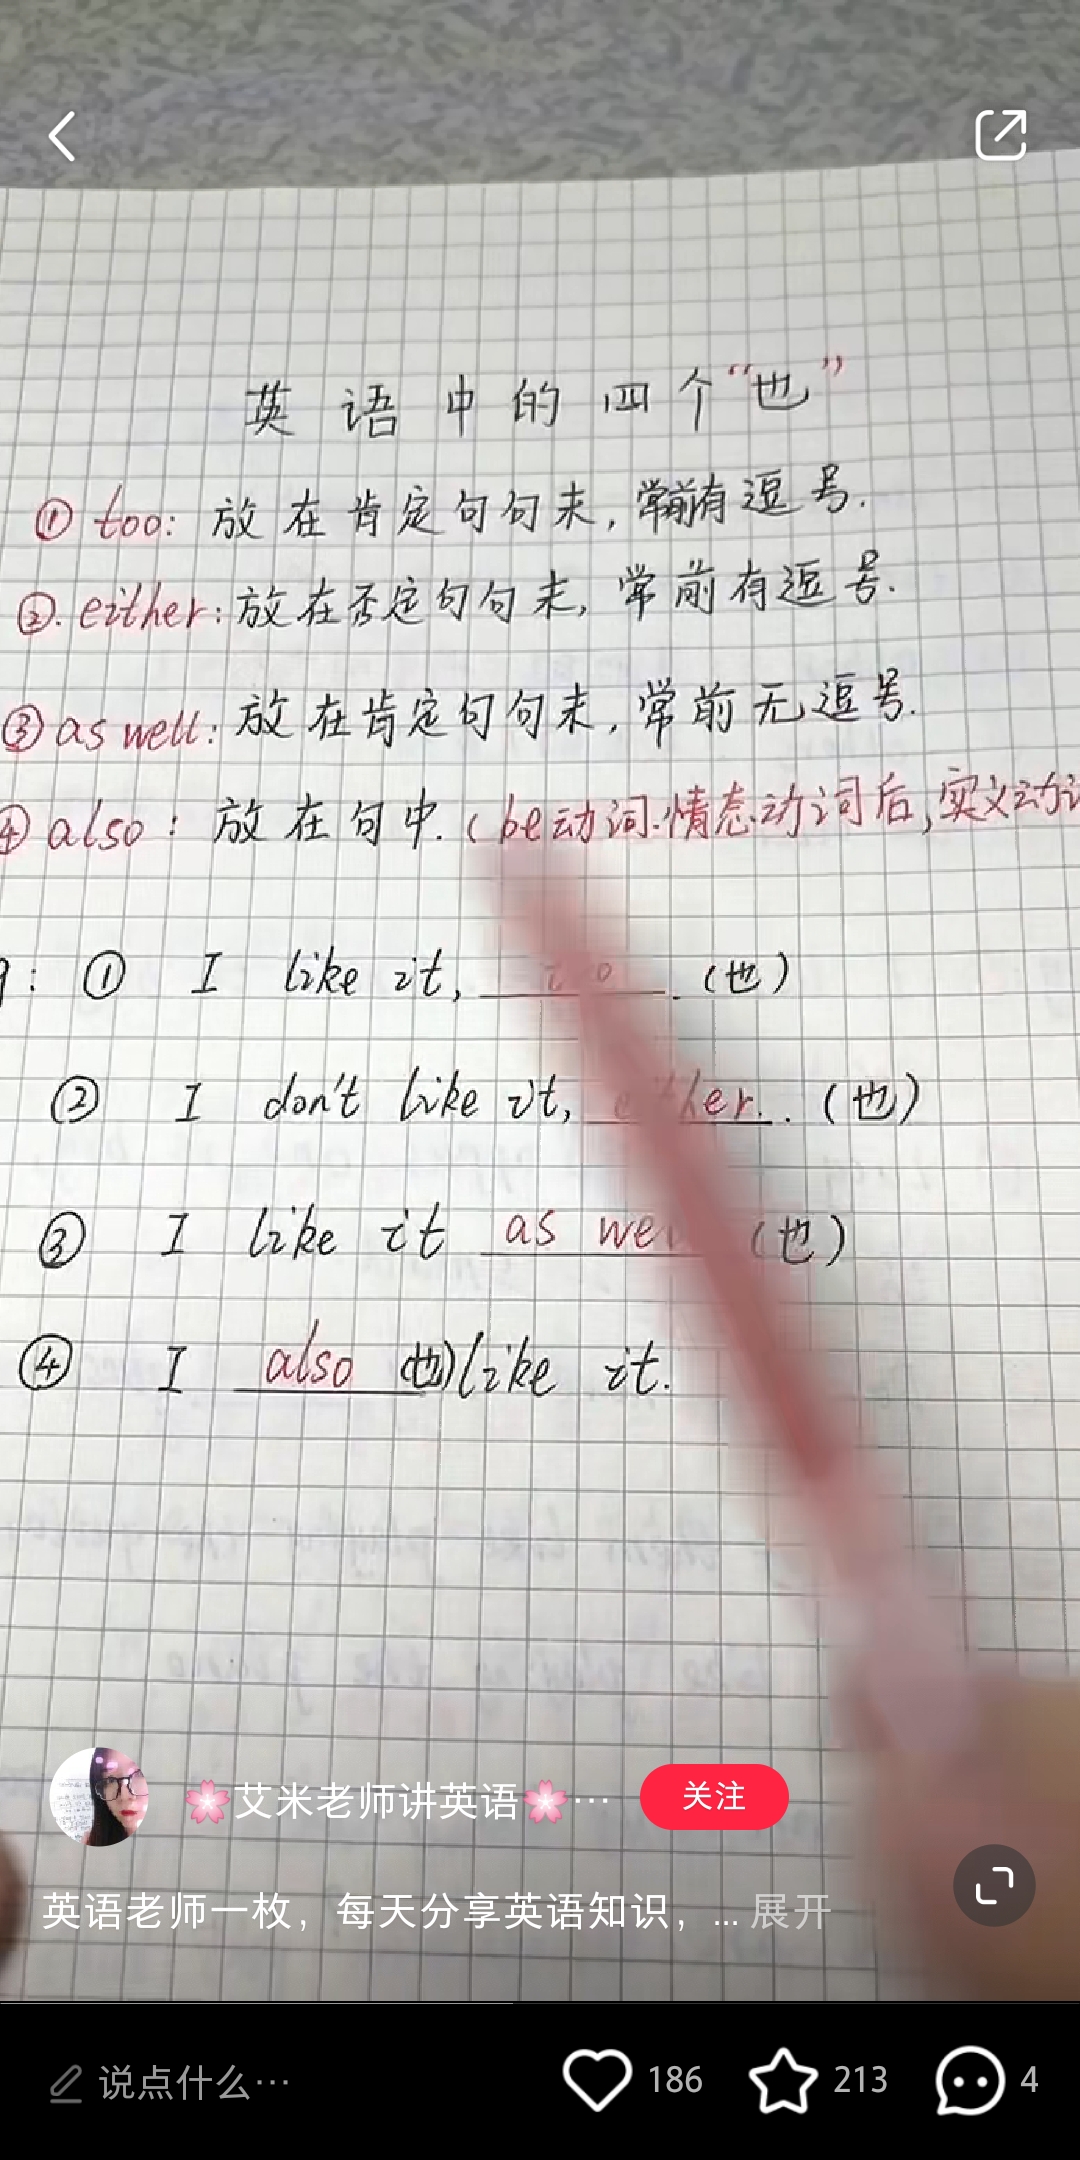 英语中的四个“也”
① too: 放在肯定句句末,常前有逗号.
②. either: 放在否定句句末,常前有逗号.
③ as well: 放在肯定句句末,常前无逗号.
④ also: 放在句中.(be动词.情态动词后,实义动词
: ① I like it, too. (也)
② I don't like it, either. (也)
③ I like it as well (也)
④ I also (也) like it.
🌸艾米老师讲英语🌸… 关注
英语老师一枚，每天分享英语知识，... 展开
说点什么… 186 213 4